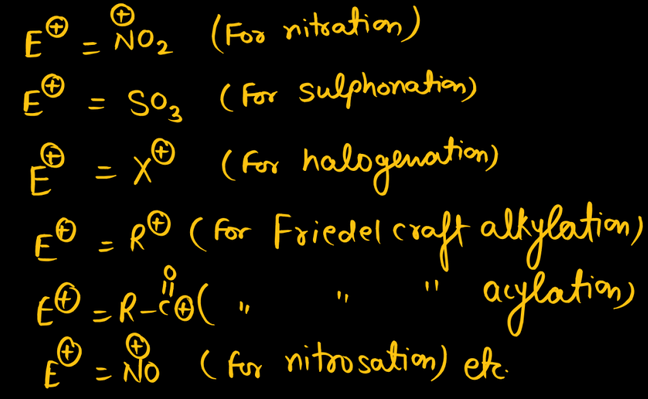 E⊕ = N⊕O₂ (For nitration)
E⊕ = SO₃ (For sulphonation)
E⊕ = X⊕ (For halogenation)
E⊕ = R⊕ (For Friedel craft alkylation)
E⊕ = R-C(=O)⊕ ( " " " acylation)
E⊕ = N⊕O (for nitrosation) etc.